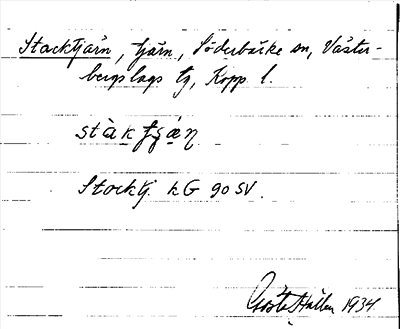 Stacktjärn, tjärn, Söderbärke sn, Väster-
bergslags tg, Kopp. l.
Stocktj. kG 90 SV.
Gösta Hallén 1934.